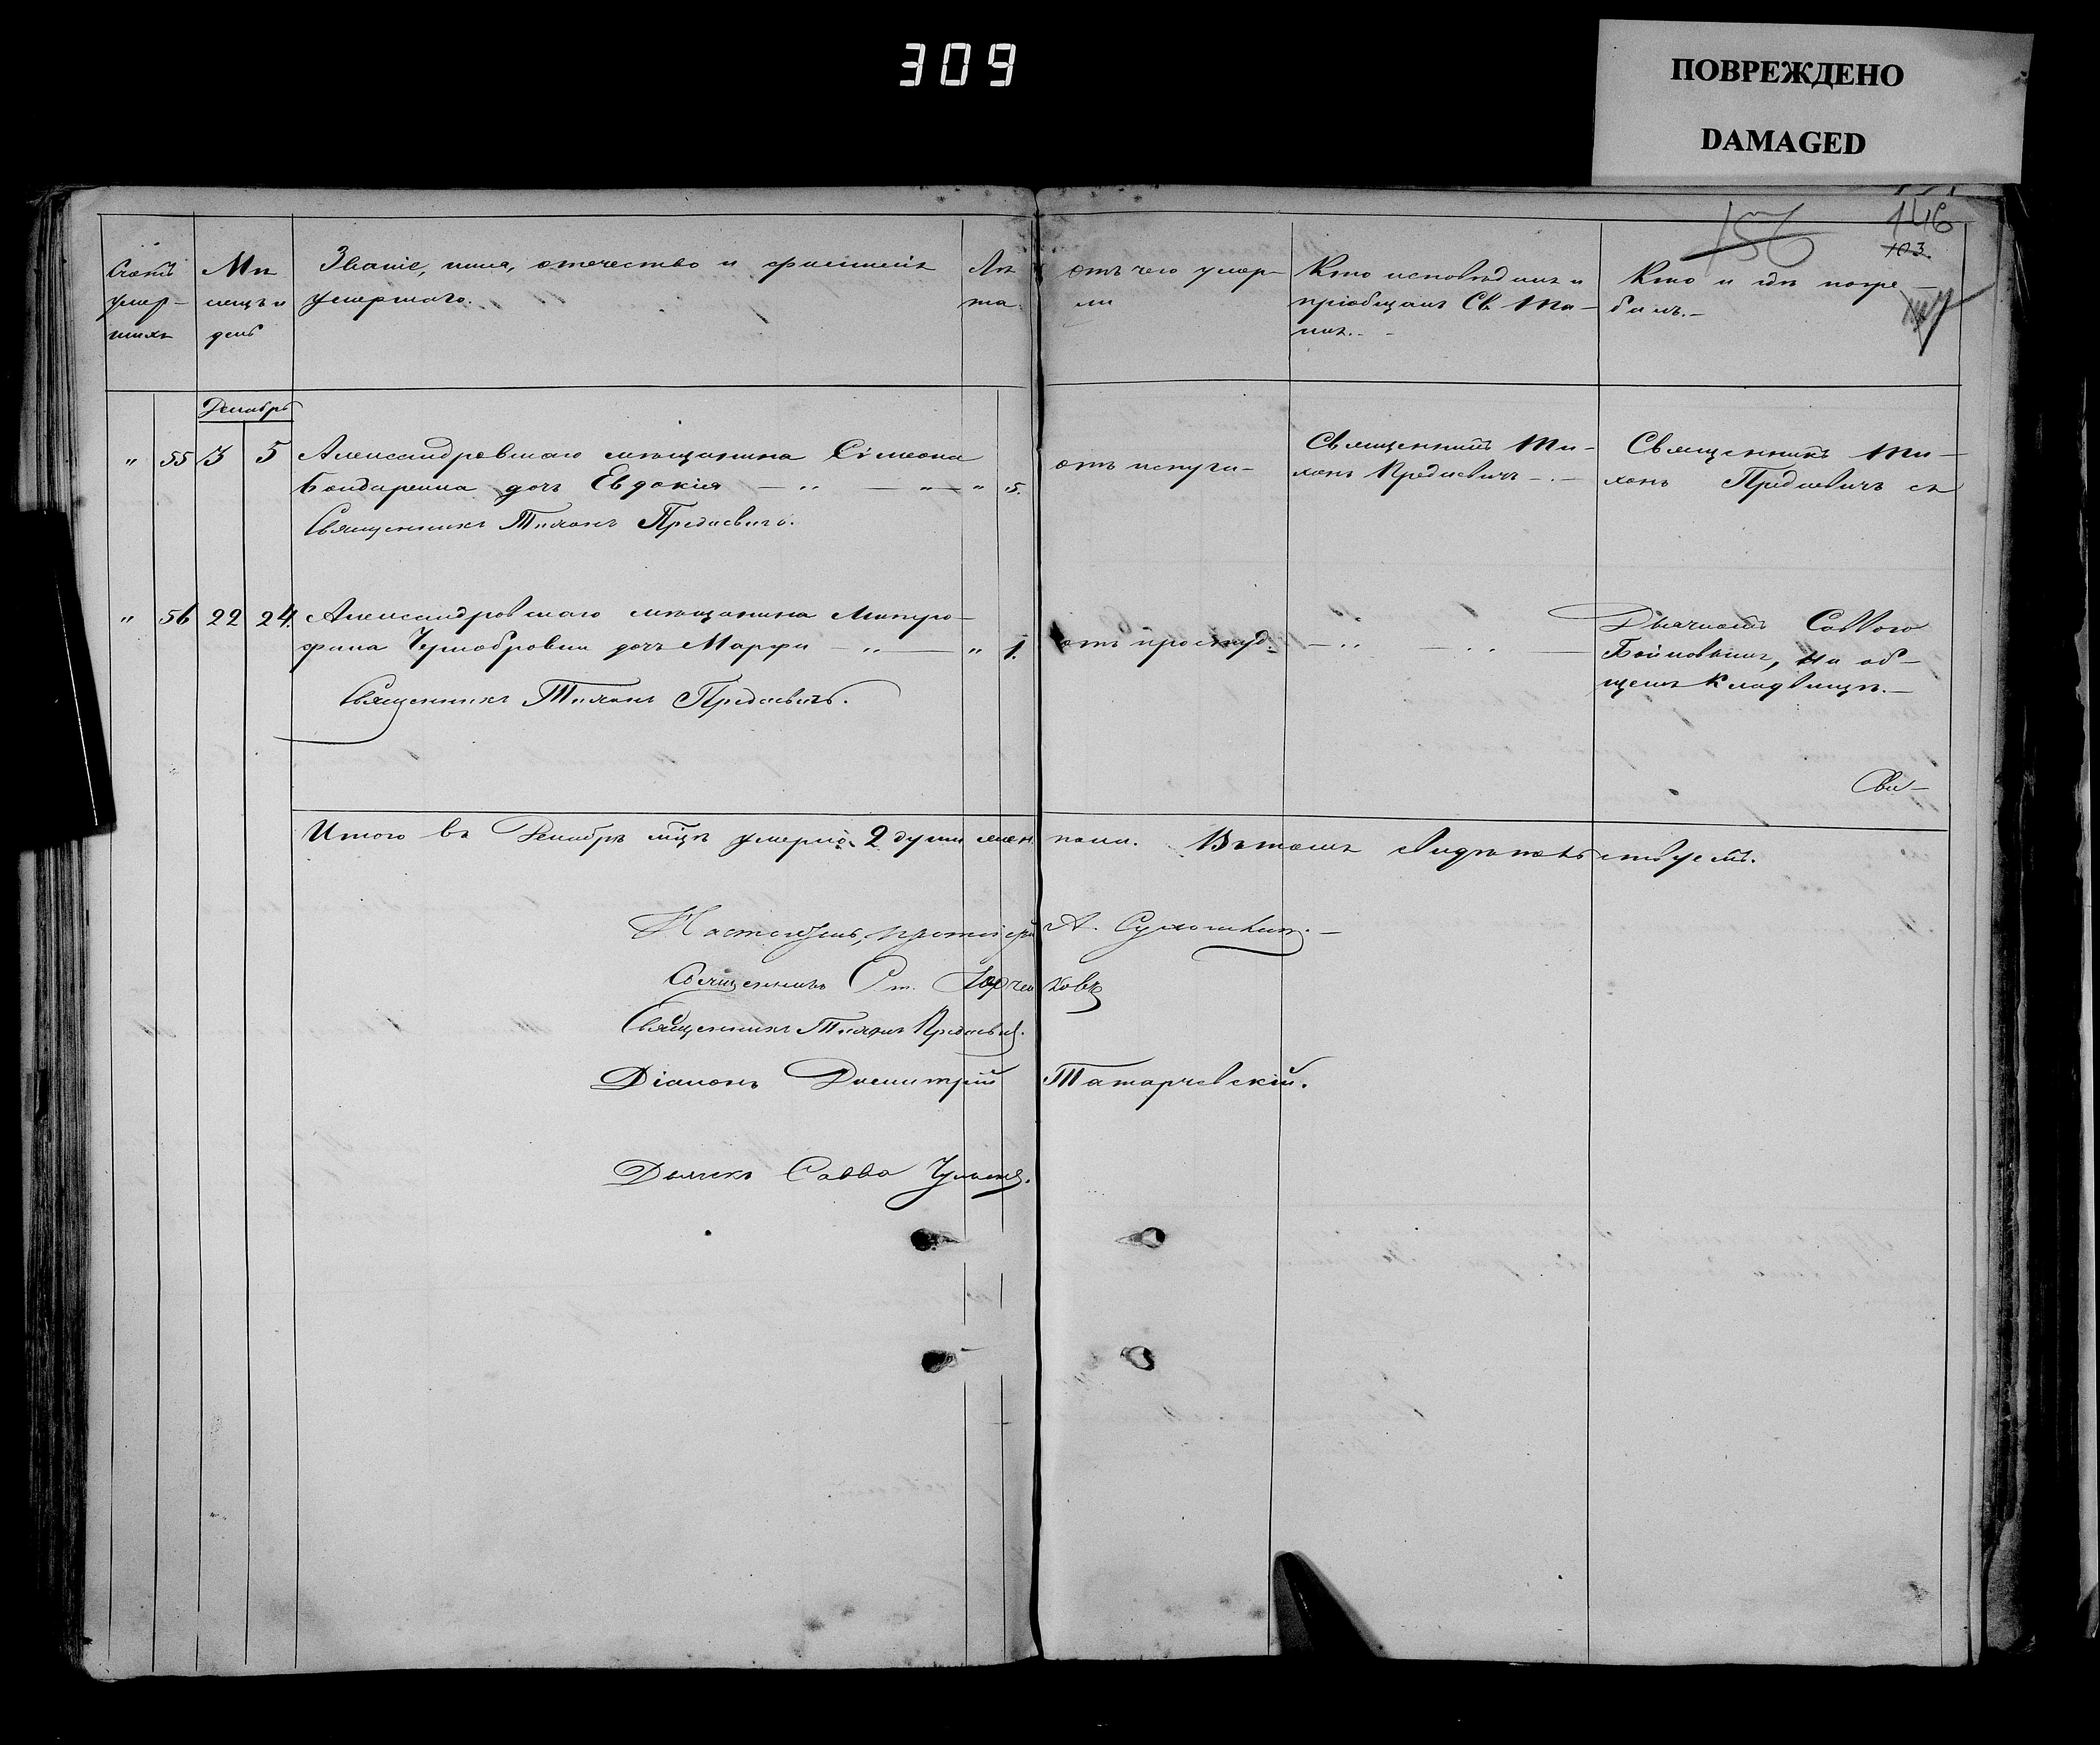 309
ПОВРЕЖДЕНО
DAMAGED
156
146
103.
Счетъ
умер-
шихъ
Мѣ
сяцъ и
день
Званіе, имя, отечество и фамилія
умершаго.
Лѣ
та.
отъ чего умер-
ли
Кто исповѣдалъ и
пріобщалъ Св. Та-
инъ. -
Кто и гдѣ погре-
балъ. -
Декабрь
" 55 3 5 Александровскаго мѣщанина Сімеона
Бондаренка дочь Евдокія — " — " — " 5.
Священникъ Тихонъ Предаевичъ.
отъ испуги -
Священникъ Ти-
хонъ Предаевичъ - . -
Священникъ Ти-
хонъ Предаевичъ съ
" 56 22 24. Александровскаго мѣщанина Митро-
фана Чернобровки дочь Марфа — " — " 1.
Священникъ Тихонъ Предаевичъ.
отъ простуд.
— " — " —
Дьячкомъ Саввою
на об-
щемъ кладбищѣ. -
Сви-
Итого въ Декабрѣ мцѣ умерло 2 души жен. пола. Въ томъ свидѣтельствуемъ.
Настоятель, протоіерей А.
Священникъ Ст.
Священникъ Тихонъ Предаевичъ.
Діаконъ Димитрій Татарчевскій.
Дьячекъ Савва